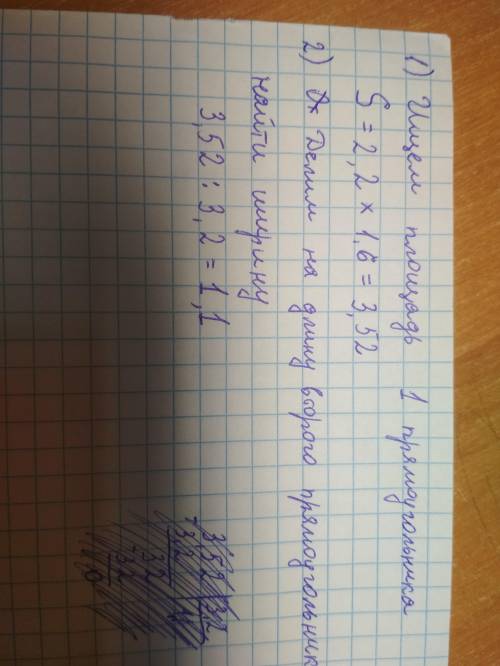 1) Ищем площадь 1 прямоугольника
S = 2,2 × 1,6 = 3,52
2) Делим на длину второго прямоугольник
найти ширину
3,52 : 3,2 = 1,1
3,52 3,2
- 32
32
- 32
0